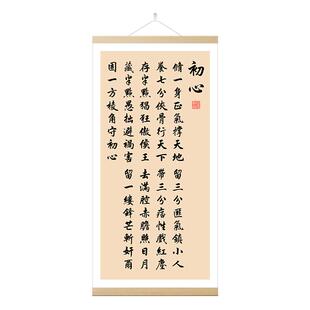 初心
脩一身正氣撑天地 留三分匪氣鎮小人
養七分俠骨行天下 帶三分痞性戲紅塵
存半點猖狂傲侯王 去滿腔赤膽照日月
藏半點愚拙避禍害 留一縷鋒芒斬奸
一方棱角守初心